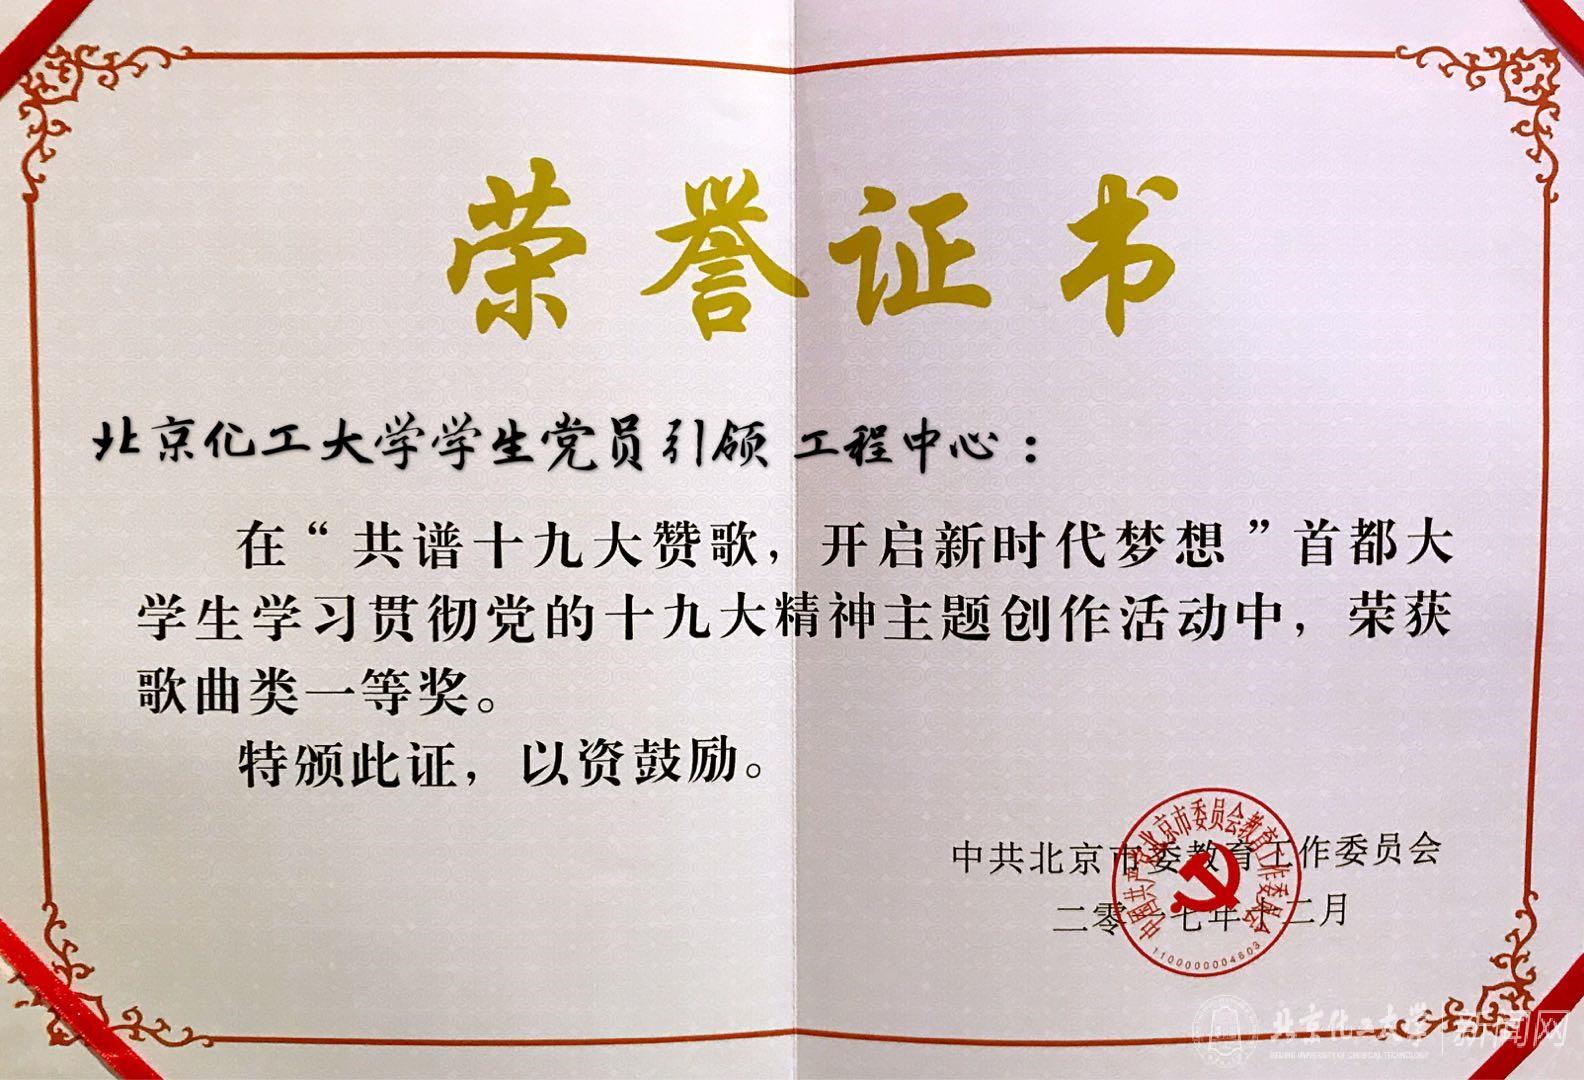 荣誉证书
北京化工大学学生党员引领 工程中心：
在“共谱十九大赞歌，开启新时代梦想”首都大
学生学习贯彻党的十九大精神主题创作活动中，荣获
歌曲类一等奖。
特颁此证，以资鼓励。
中共北京市委教育工作委员会
二零一七年十二月
中国共产党北京市委员会教育工作委员会
1100000004603
北京化工大学 新闻网
BEIJING UNIVERSITY OF CHEMICAL TECHNOLOGY